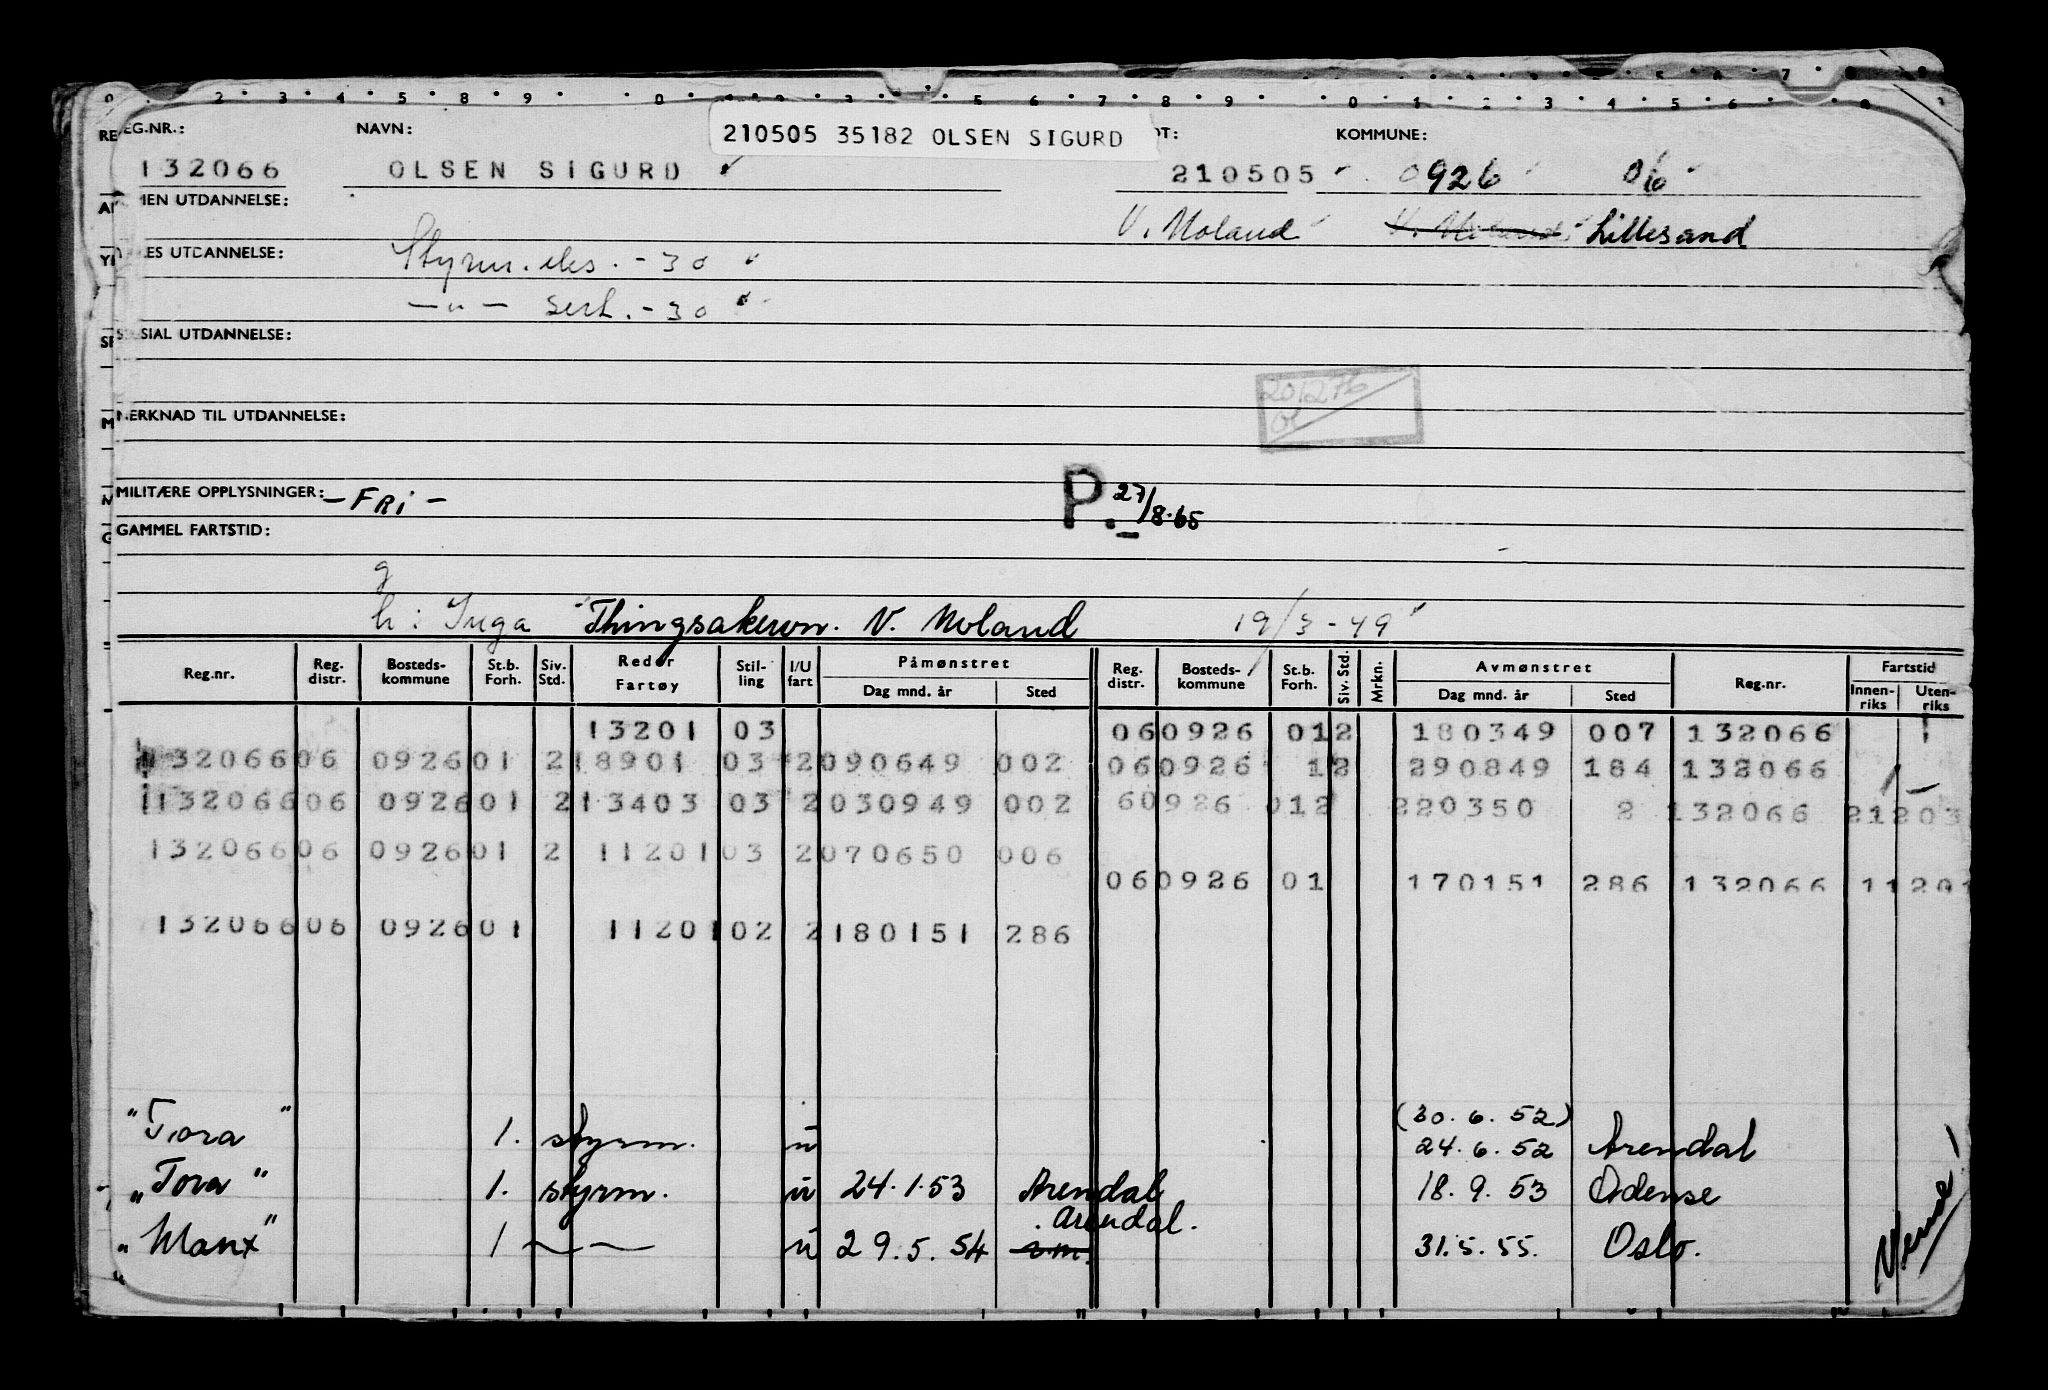 210505 35182 OLSEN SIGURD
REG.NR.: NAVN: KOMMUNE:
132066 OLSEN SIGURD 210505 0926 06
ALMEN UTDANNELSE: V. Moland V. Moland Lillesand
YRKES UTDANNELSE: Styrm. eks. - 30
— " — sert. - 30
SPESIAL UTDANNELSE:
201276
MERKNAD TIL UTDANNELSE:
MILITÆRE OPPLYSNINGER: - FRI - P. 27/8.65
GAMMEL FARTSTID:
g
h: Inga V. Moland 19/3-49
Reg.nr. Reg. distr. Bosteds-kommune St.b. Forh. Siv. Std. Reder Fartøy Stil-ling I/U fart Påmønstret Dag mnd. år Sted Reg. distr. Bosteds-kommune St.b. Forh. Siv. Std. Mrkn. Avmønstret Dag mnd. år Sted Reg.nr. Fartstid Innen-riks Uten-riks
13201 03 060926 012 180349 007 132066
13206606 092601 218901 03 2090649 002 060926 12 290849 184 132066
13206606 092601 213403 03 2030949 002 60926 012 220350 2 132066 21203
13206606 092601 2 11201 03 2070650 006
060926 01 170151 286 132066 11201
13206606 092601 11201 02 2180151 286
(30.6.52)
"Tora" 1. styrm. u 24.6.52 Arendal
"Tora" 1. styrm. u 24.1.53 Arendal 18.9.53 Odense
Arendal.
"Manx" 1 — — u 29.5.54 31.5.55. Oslo.
Vende